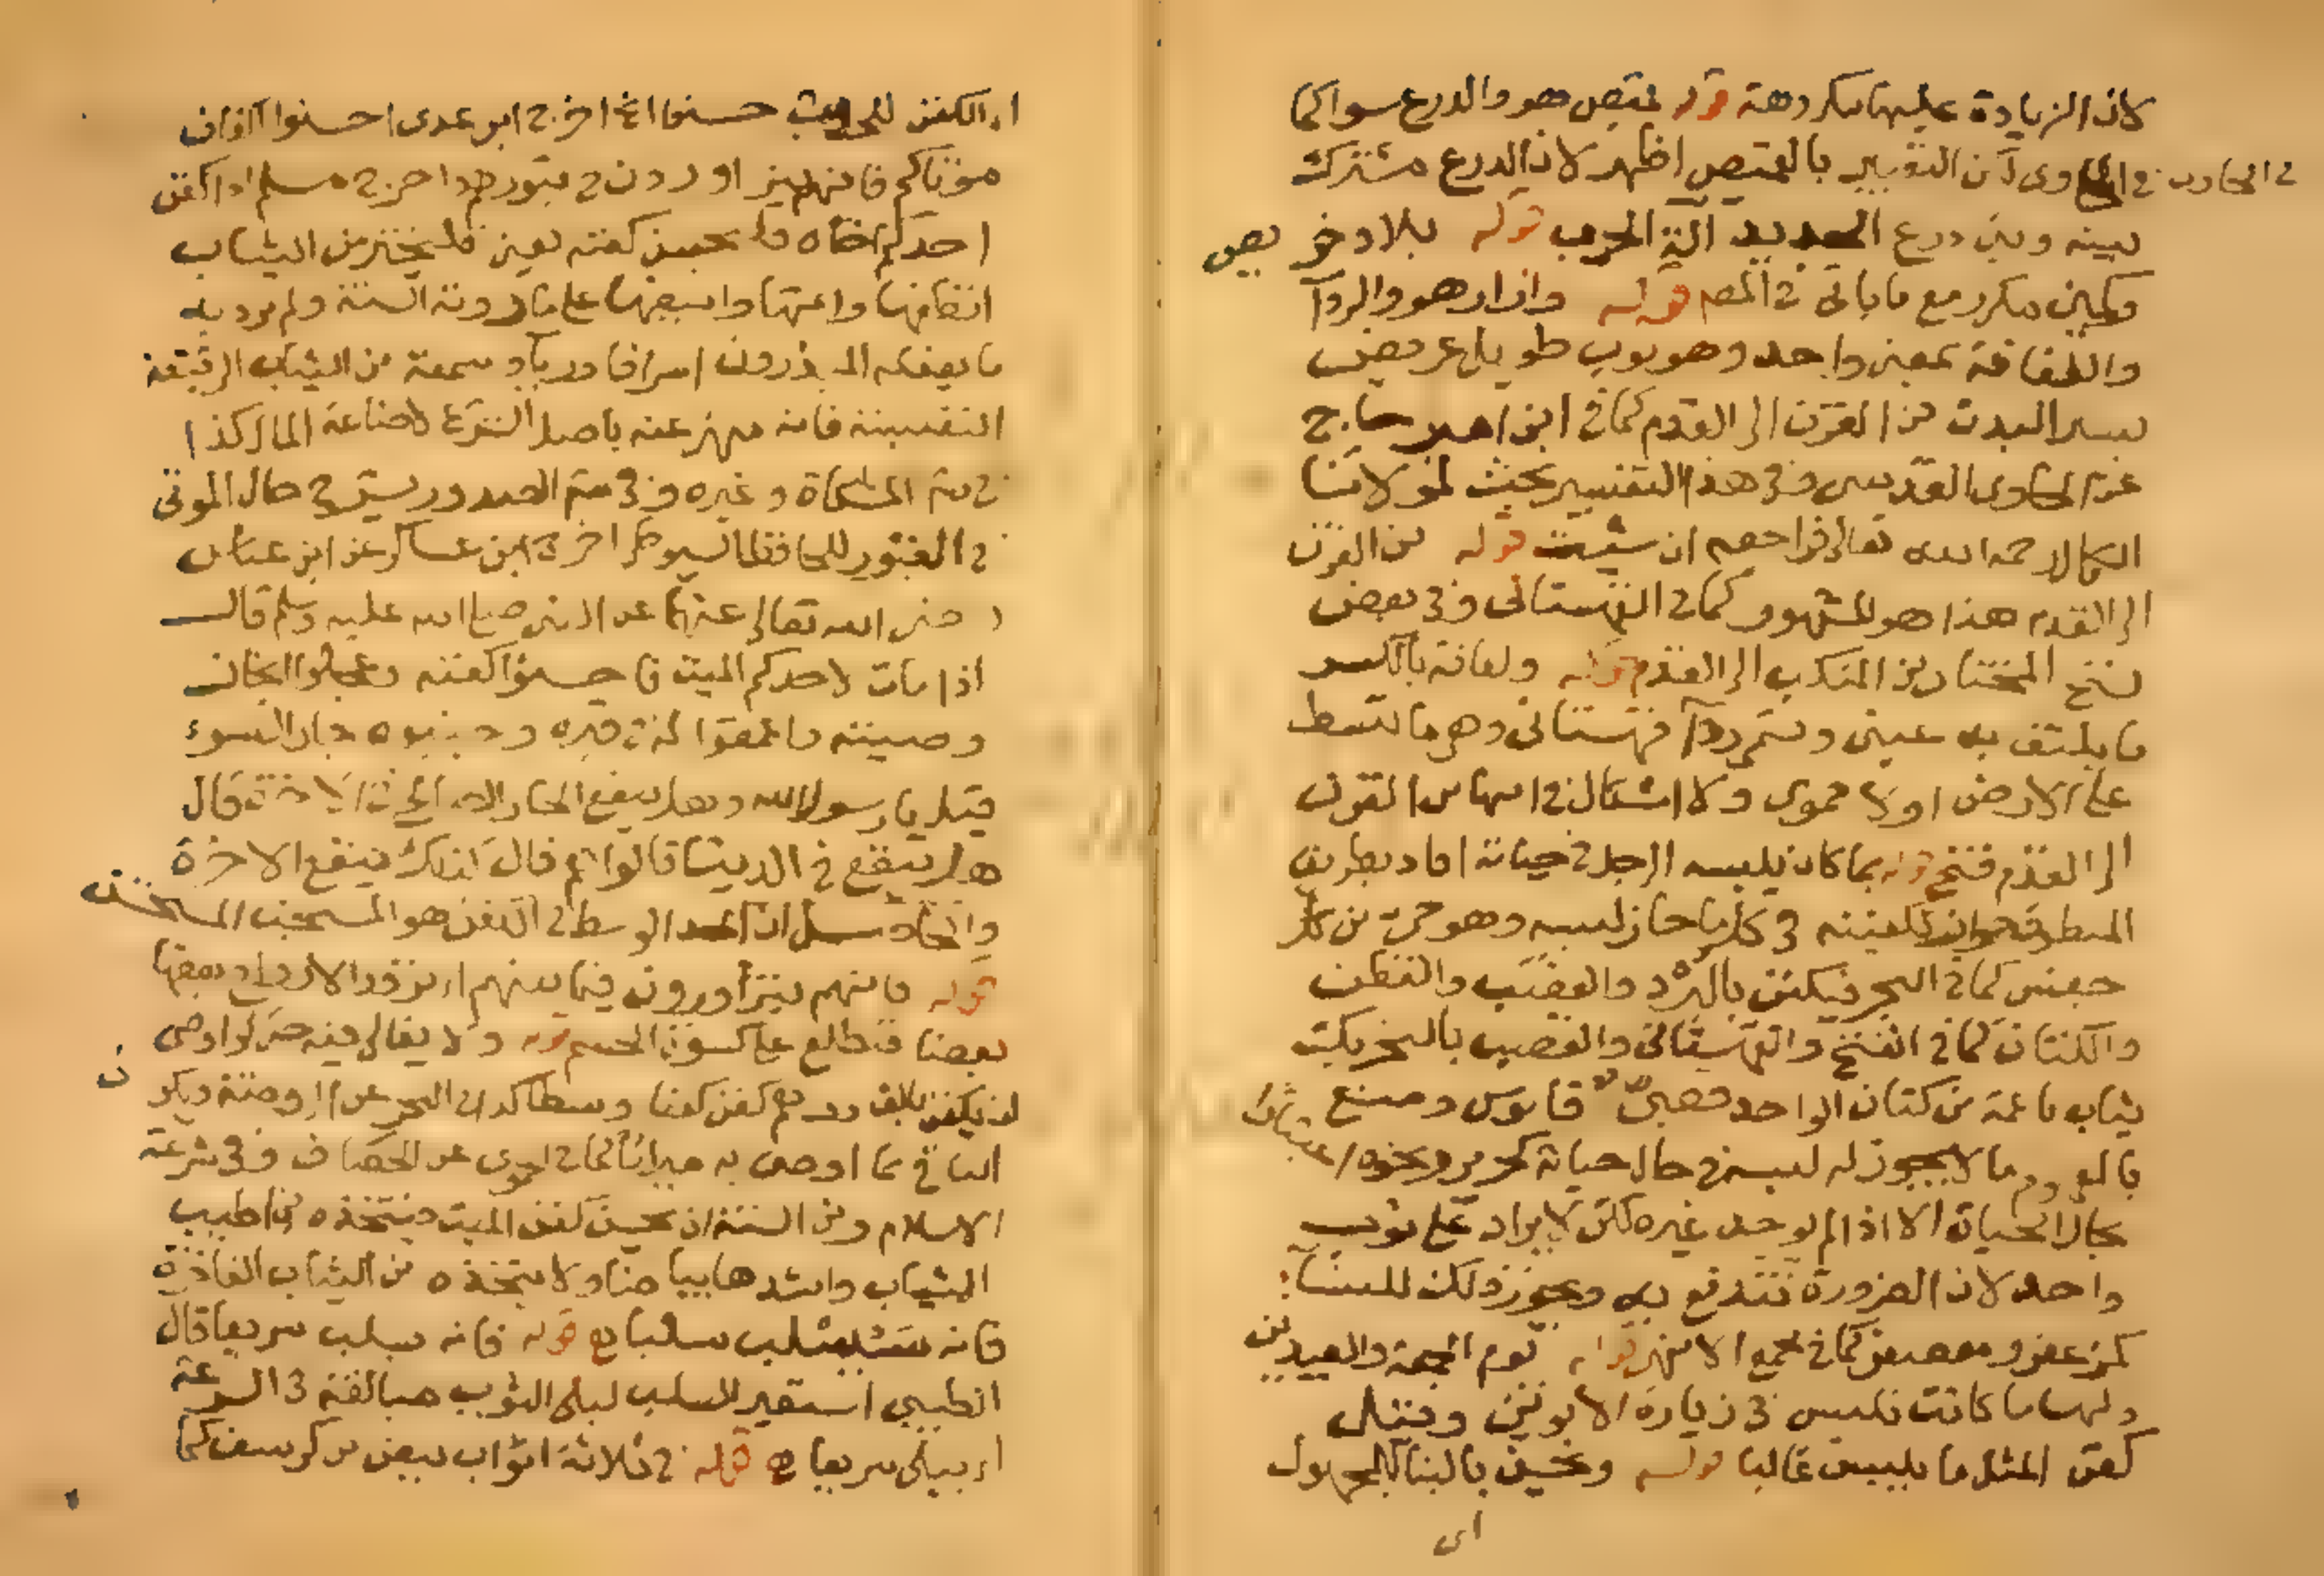 لان الزيادة عليها مكروهة قوله قميص هو والدرع سوا كما
في الحاوي لكن التعبير بالقميص اظهر لان الدرع مشترك
بينه وبين درع الحديد آلة الحرب قوله بلا دخريص
وكمين مكرر مع ما ياتي في المص قوله وازار هو والردآ
واللفافة بمعنى واحد وهو ثوب طويل عريض
يستر البدن من القرن الى القدم كما في ابن امير حاج
عن الحاوي القدسي وفي هذا التفسير بحث لمولانا
الكمال رحمه الله تعالى فراجعه ان شيت قوله من القرن
الى القدم هذا هو المشهور كما في القهستاني وفي بعض
نسخ المختار من المنكب الى القدم قوله ولفافة بالكسر
ما يلتف به عيني وتسمى ردآ قهستاني وهي ما تبسط
على الارض اولا حموي ولا اشكال في انها من القرن
الى القدم فتح قوله مما كان يلبسه الرجل في حياته افاد بطريق
المنطوق جواز تكفينه في كل ما جاز لبسه وهو حي من كل
جنس كما في البحر فيكفن بالبرد والقصب والقطن
والكتان كما في الفتح والقهستاني والقصب بالتحريك
ثياب ناعمة من كتان الواحد قصبي قاموس ومنع
بالمفهوم ما لا يجوز له لبسه في حال حياته كحرير ونحوه اعتبارا
بحال الحياة الا اذا لم يوجد غيره لكن لا يزاد على ثوب
واحد لان الضرورة تندفع به ويجوز ذلك للنسا
كمزعفر ومعصفر كما في مجمع الانهر قوله يوم الجمعة والعيدين
ولها ما كانت تلبس في زيارة الابوين وقيل
كفن المثل ما يلبس غالبا قوله ويحسن بالبنا للمجهول
اي
اي الكفن للحديث حسنوا الخ اخرج ابن عدي احسنوا اكفان
موتاكم فانهم يتزاورون في قبورهم واخرج مسلم اذا كفن
احدكم اخاه فليحسن كفنه يعني فليختر من الثياب
انظفها واتمها وابيضها على ما روته السنة ولم يرد به
ما يفعله المبذرون اسرافا وريآ وسمعة من الثياب الرقيقة
النفيسة فانه منهي عنه باصل الشرع لاضاعة المال كذا
في شرح المشكاة وغيره وفي شرح الصدور بشرح حال الموتى
في القبور للحافظ السيوطي اخرج ابن عساكر عن ابن عباس
رضي الله تعالى عنهما عن النبي صلى الله عليه وسلم قال
اذا مات لاحدكم الميت فاحسنوا كفنه وعجلوا انجاز
وصيته واعمقوا له في قبره وجنبوه جار السوء
قيل يا رسول الله وهل ينفع الجار الصالح في الاخرة قال
هل ينفع في الدنيا قالوا نعم قال كذلك ينفع الاخرة
والحاصل ان الحد الوسط في الكفن هو المستحب المستحسن
قوله فانهم يتزاورون فيما بينهم اي تزور الارواح بعضها
بعضا فتطلع على كسوة الجسم قوله ولا يغالى فيه حتى لو اوصى
ان يكفن بالف درهم كفن كفنا وسطا كذا في البحر عن الروضة ويكون
الباقي مما اوصى به ميراثا كما في الحموي عن الخصاف وفي شرعة
الاسلام ومن السنة ان يحسن كفن الميت ويتخذه من اطيب
الثياب واشدها بياضا ولا يتخذه من الثياب الفاخرة
فانه يسلب سلبا سريعا قوله فانه يسلب سريعا قال
الطيبي استعير السلب لبلى الثوب مبالغة في السرعة
اي يبلى سريعا قوله في ثلاثة اثواب بيض من كرسف كما